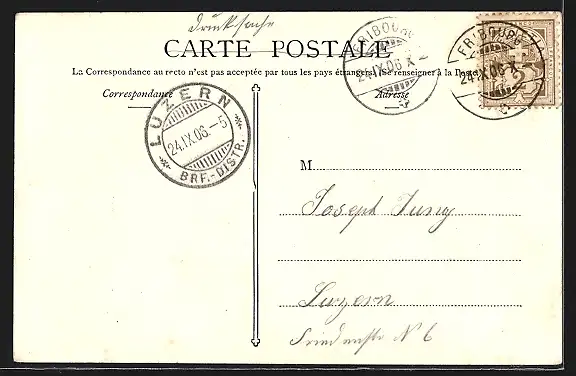 Drucksache
CARTE POSTALE
La Correspondance au recto n'est pas acceptée par tous les pays étrangers. (Se renseigner à la Poste)
Correspondance
Adresse
FRIBOURG
24.IX.06 X-
FRIBOURG
24.IX.06 X-
LUZERN
24.IX.06.-5
BRF.-DISTR.
M
Joseph Jung
Luzern
N° 6